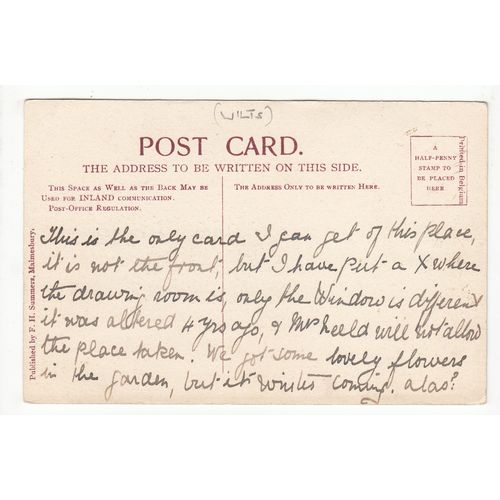 (WILTS)
POST CARD.
THE ADDRESS TO BE WRITTEN ON THIS SIDE.
THIS SPACE AS WELL AS THE BACK MAY BE
USED FOR INLAND COMMUNICATION.
POST-OFFICE REGULATION.
THE ADDRESS ONLY TO BE WRITTEN HERE.
A
HALF-PENNY
STAMP TO
BE PLACED
HERE
Printed in Belgium
Published by F. H. Summers, Malmesbury.
This is the only card I can get of this place,
it is not the front, but I have put a X where
the drawing room is, only the Window is different
it was altered 4 yrs ago, & Mrs will not allow
the place taken. We got some lovely flowers
in the garden, but its Winter coming. alas!